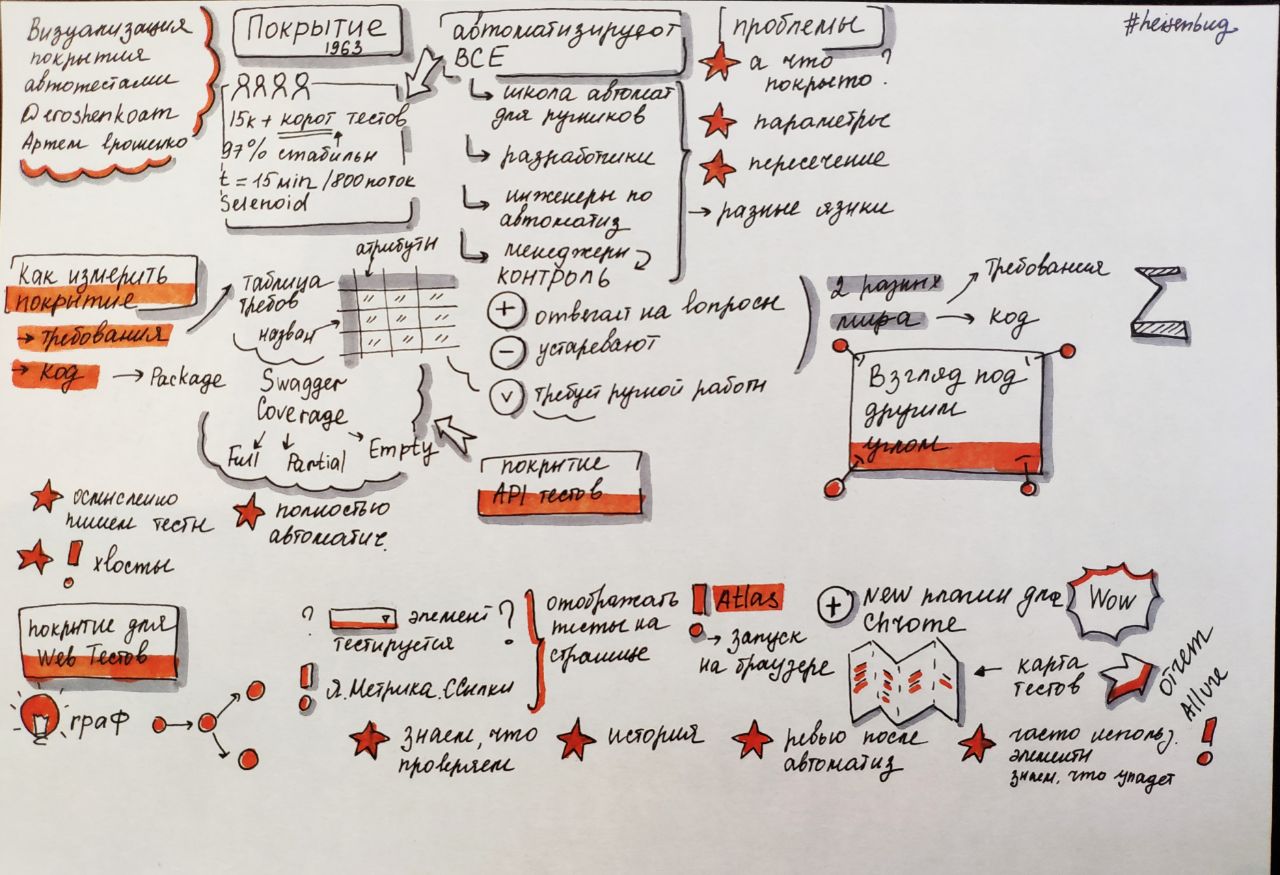 Визуализация
покрытия
автотестами
@eroshenkoam
Артем Ерошенко
Покрытие
1963
15к + корот тестов
97% стабильн
t = 15 min / 800 поток
Selenoid
автоматизируют
ВСЕ
школа автомат
для ручников
разработчики
инженеры по
автоматиз
менеджеры
контроль
проблемы
а что
покрыто?
параметры
пересечение
разные языки
#heisenbug
Как измерить
покрытие
требования
код
Package
таблица
требов
назван
атрибуты
+ отвечает на вопросы
- устаревают
v требует ручной работы
2 разных
мира
Требования
код
Взгляд под
другим
углом
Swagger
Coverage
Full
Partial
Empty
покрытие
API тестов
осмысленно
пишем тесты
полностью
автоматич.
! хвосты
покрытие для
Web Тестов
граф
? элемент ?
тестируется
! Я.Метрика. ССылки
отображать
тесты на
странице
! Atlas
запуск
на браузере
+ New плагин для
Chrome
Wow
карта
тестов
отчет
Allure
знаем, что
проверяем
история
ревью после
автоматиз
часто использ.
элементы
знаем, что упадет
!